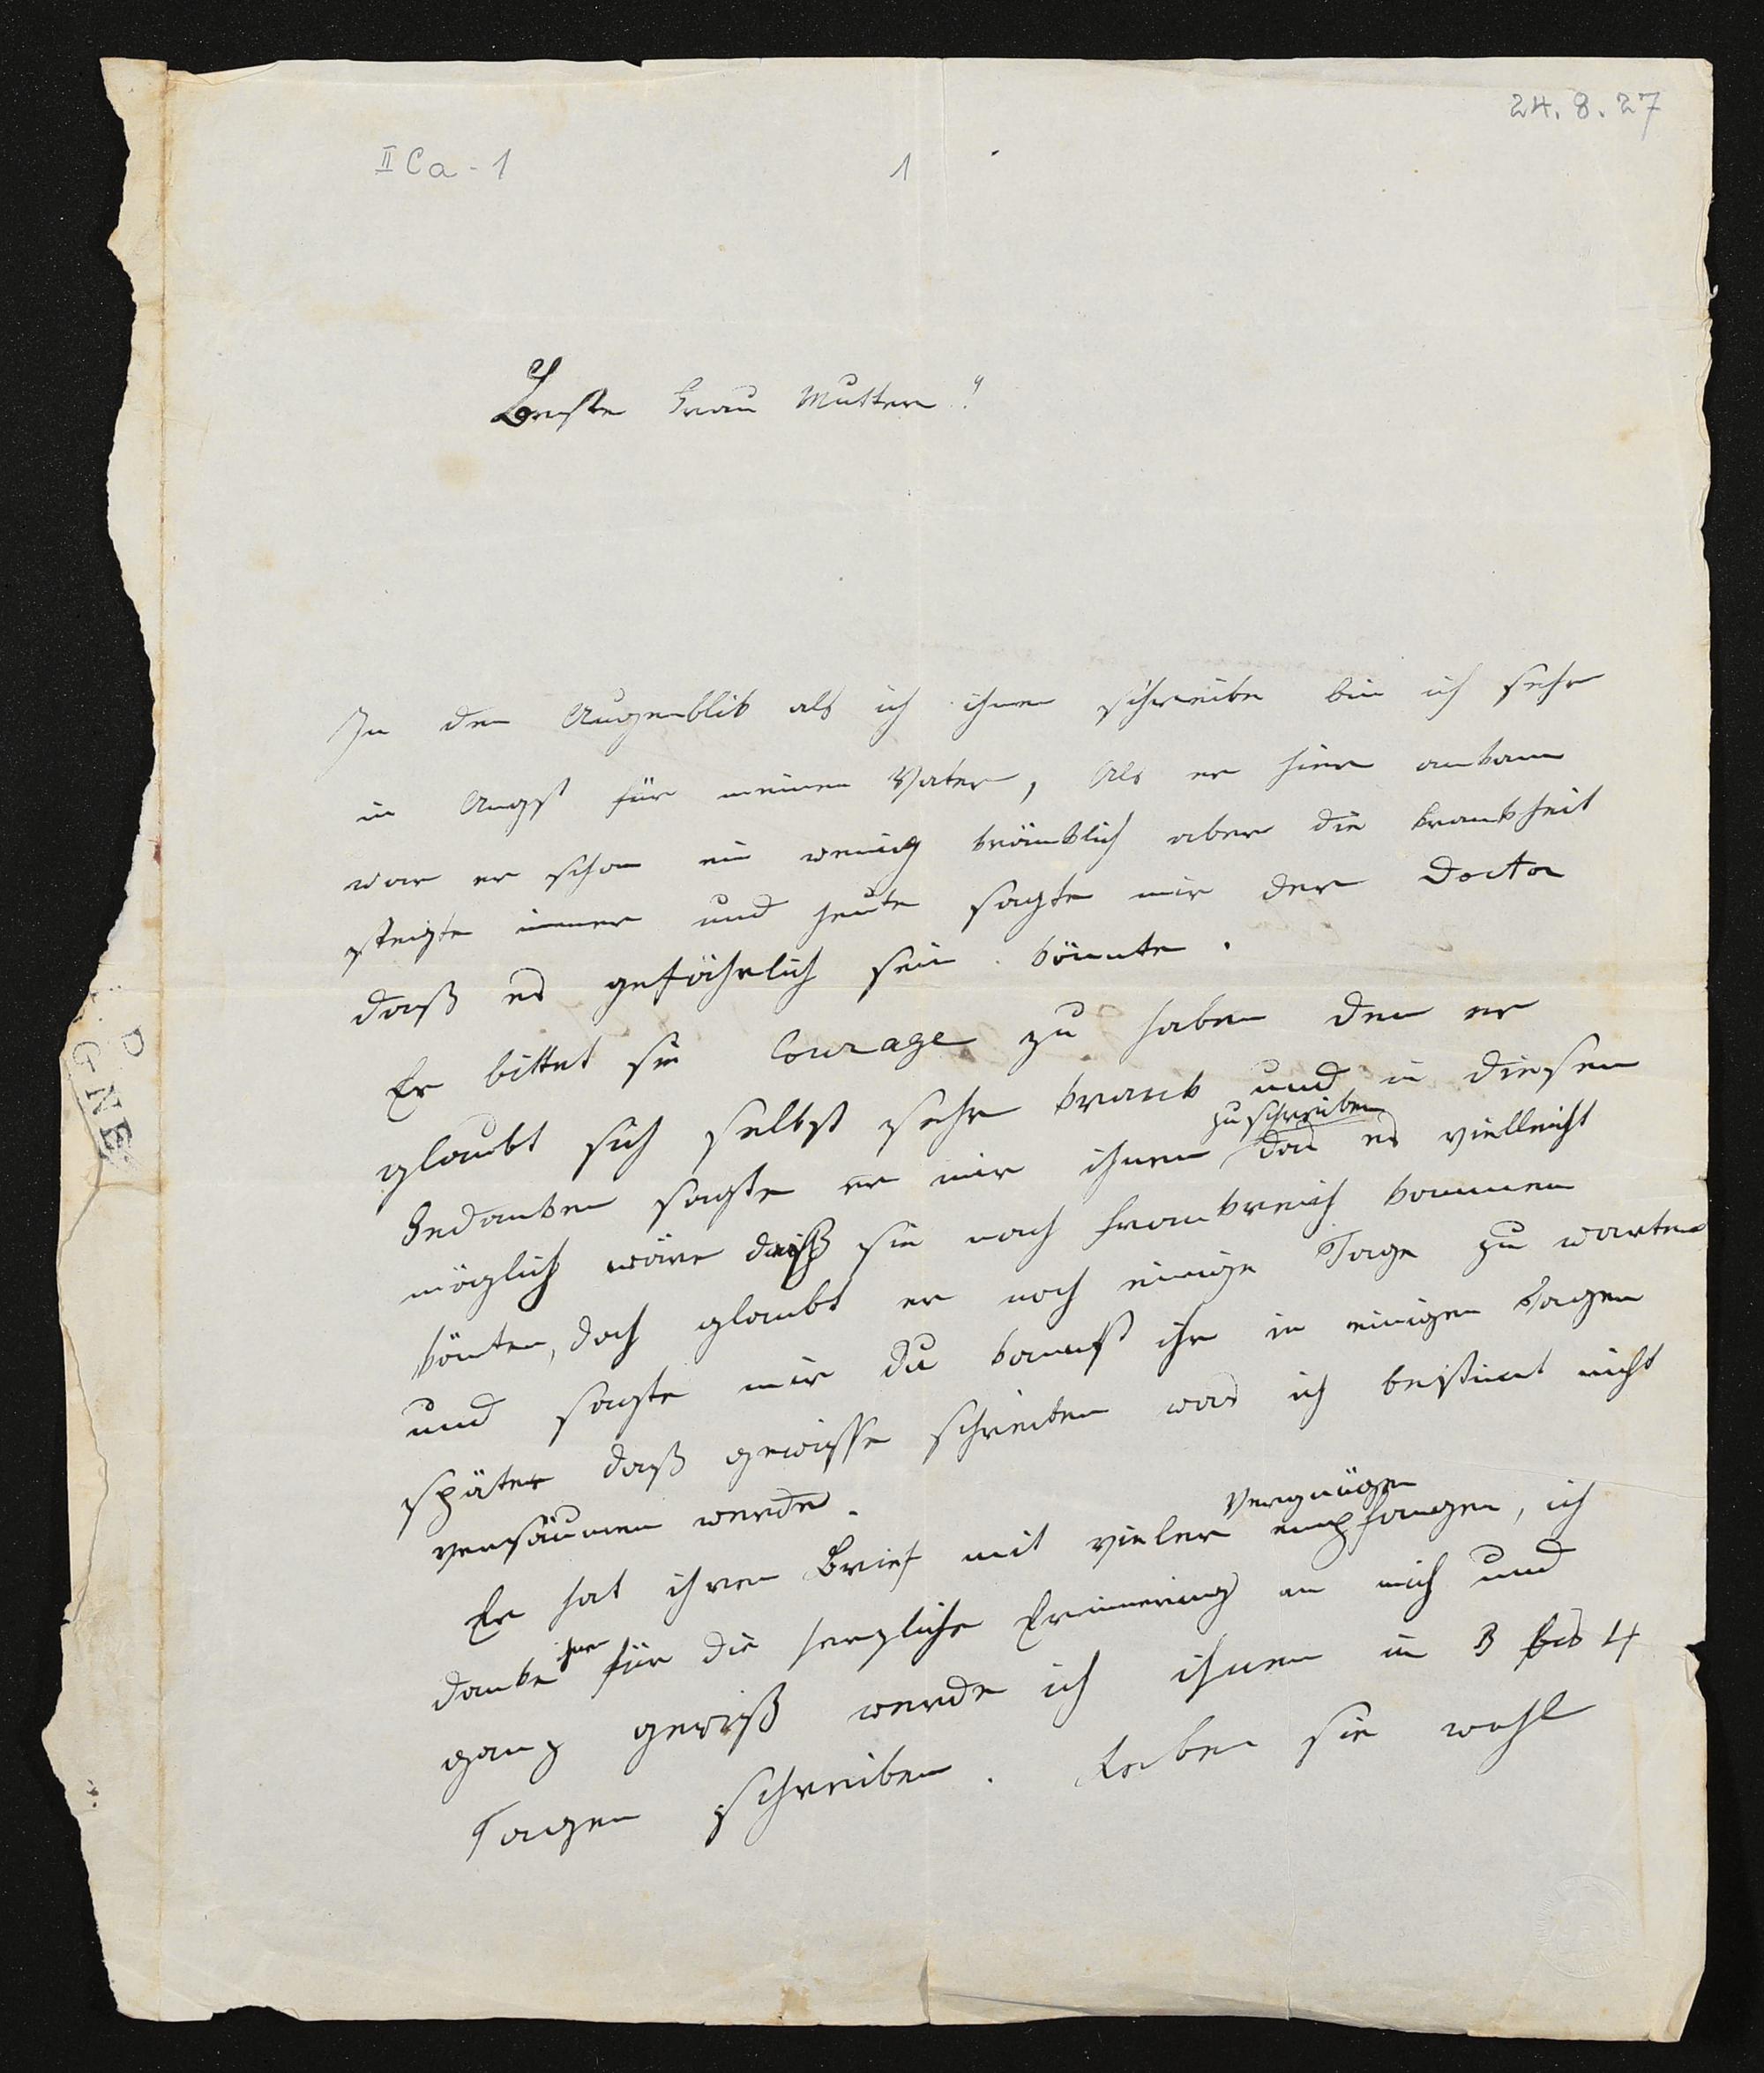 24.8.27
II Ca-1
1
Beste Frau Mutter!
In dem Augenblik als ich ihnen schreibe bin ich sehr
in Angst für meinen Vater, Als er hier ankam
war er schon ein wenig kränklich aber die krankheit
steigte immer und heute sagte mir der Doctor
daß es gefährlich sein könnte.
Er bittet sie Courage zu haben den er
glaubt sich selbst sehr krank und in diesen
Gedanken sagte er mir ihnen zu schreiben das es vielleicht
möglich wäre daß sie nach Frankreich kommen
könten, doch glaubt er noch einige Tage zu warten
und sagte mir du kannst ihr in einigen Tagen
später daß gewisse schreiben was ich bestimt nicht
versäumen werde.
Er hat ihren Brief mit vieler Vergnügen empfangen, ich
danke ihnen für die herzliche Erinnerung an mich und
ganz gewiß werde ich ihnen in 3 bis 4
Tagen schreiben. Leben sie wohl
P
GNE